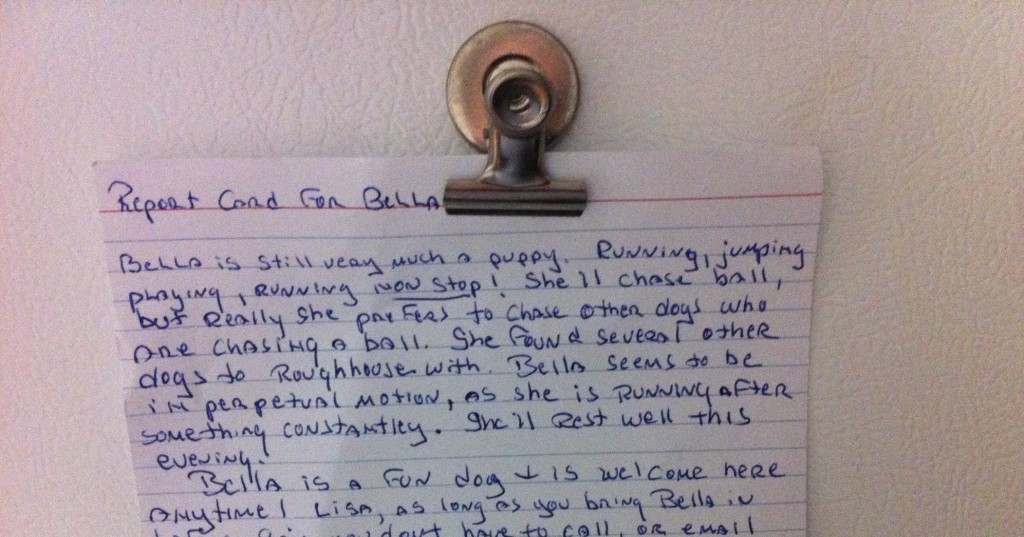 Report Card For Bella
Bella is still very much a puppy. Running, jumping
playing, running non stop! She'll chase ball,
but really she prefers to chase other dogs who
are chasing a ball. She found several other
dogs to Roughhouse with. Bella seems to be
in perpetual motion, as she is running after
something constantley. She'll rest well this
evening.
Bella is a fun dog + is welcome here
anytime! Lisa, as long as you bring Bella in
don't have to call, or email